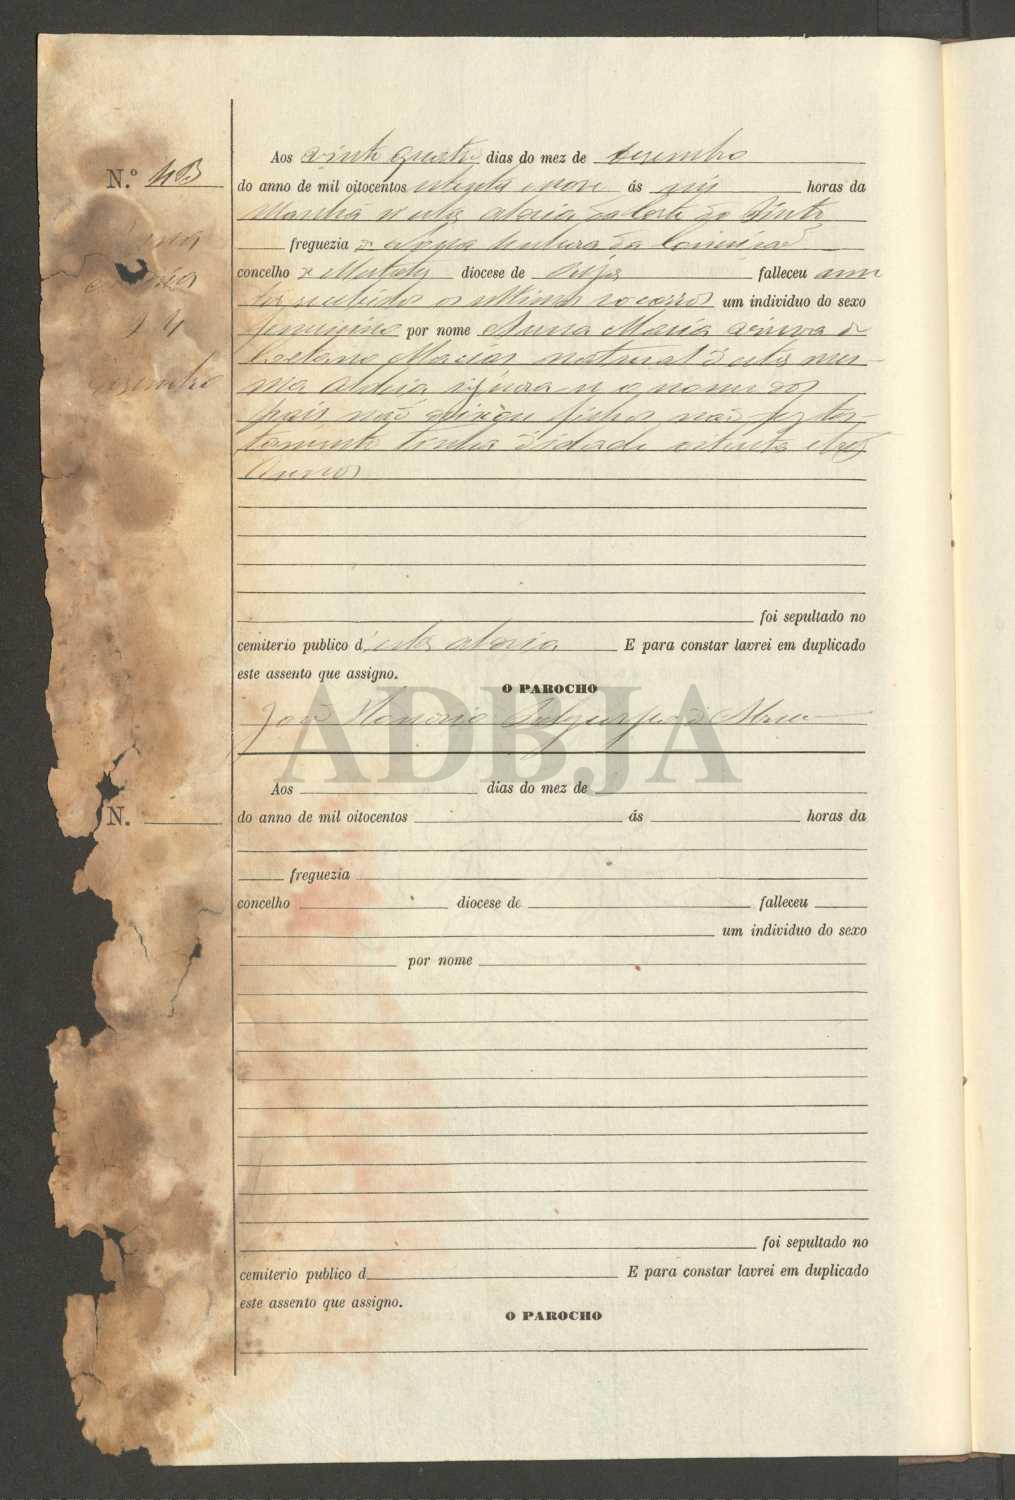 N.º 43
Anna
Maria
24
Dezembro
Aos vinte quatro dias do mez de dezembro
do anno de mil oitocentos oitenta e nove ás seis horas da
manhã n'esta aldeia da Corte do Pinto
freguezia de Nossa Senhora da Conceição
concelho de Mertola diocese de Beja falleceu
recebidos os ultimos socorros um individuo do sexo
feminino por nome Anna Maria viuva de
Caetano Macias natural d'esta mes-
ma aldeia ignora-se o nome dos
pais não deixou filhos não fez tes-
tamento tinha d'idade oitenta e tres
annos
foi sepultado no
cemiterio publico d'esta aldeia E para constar lavrei em duplicado
este assento que assigno.
O PAROCHO
ADBJA
N.
Aos dias do mez de
do anno de mil oitocentos ás horas da
freguezia
concelho diocese de falleceu
um individuo do sexo
por nome
foi sepultado no
cemiterio publico d
E para constar lavrei em duplicado
este assento que assigno.
O PAROCHO